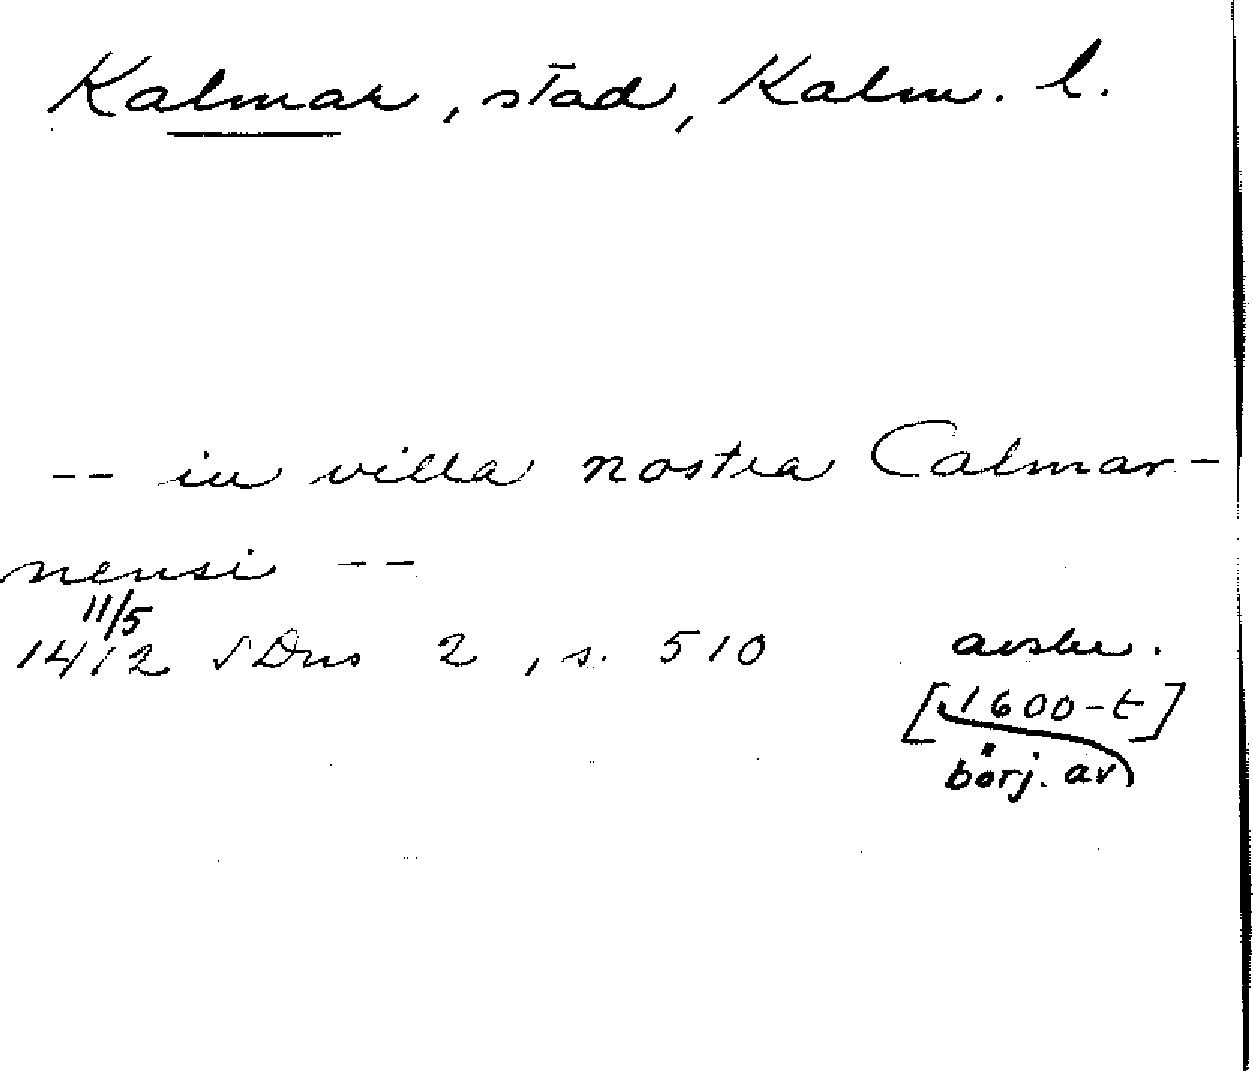 Kalmar, stad, Kalm. l.
-- in villa nostra Calmar-
nensi --
11/5
1412 SDns 2, s. 510 avskr.
[1600-t]
börj. av